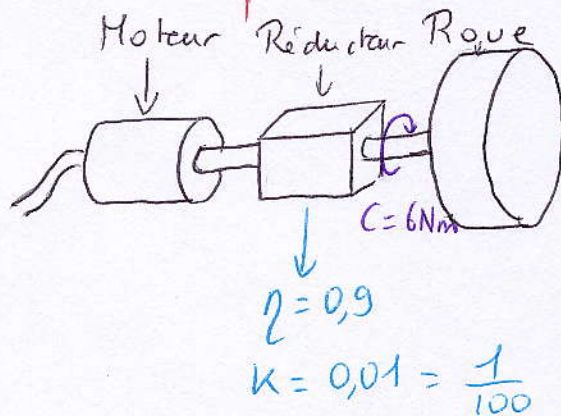 Moteur Réducteur Roue
C=6Nm
η=0,9
K=0,01=1/100